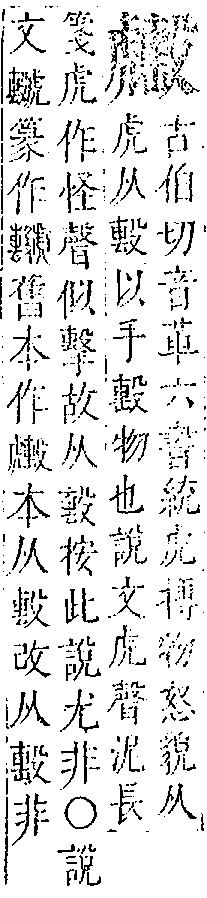 古伯切音革六書統虎搏物怒貌从
虎从毄以手毄物也說文虎聲況長
箋虎作怪聲似擊故从毄按此說尤非○說
文篆作舊本作本从毄改从毄非